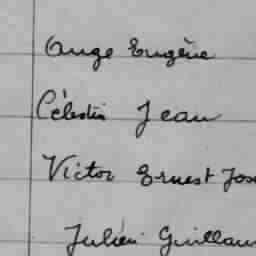 Ange Eugène
Célestin Jean
Victor Ernest Jos
Julien Guillau